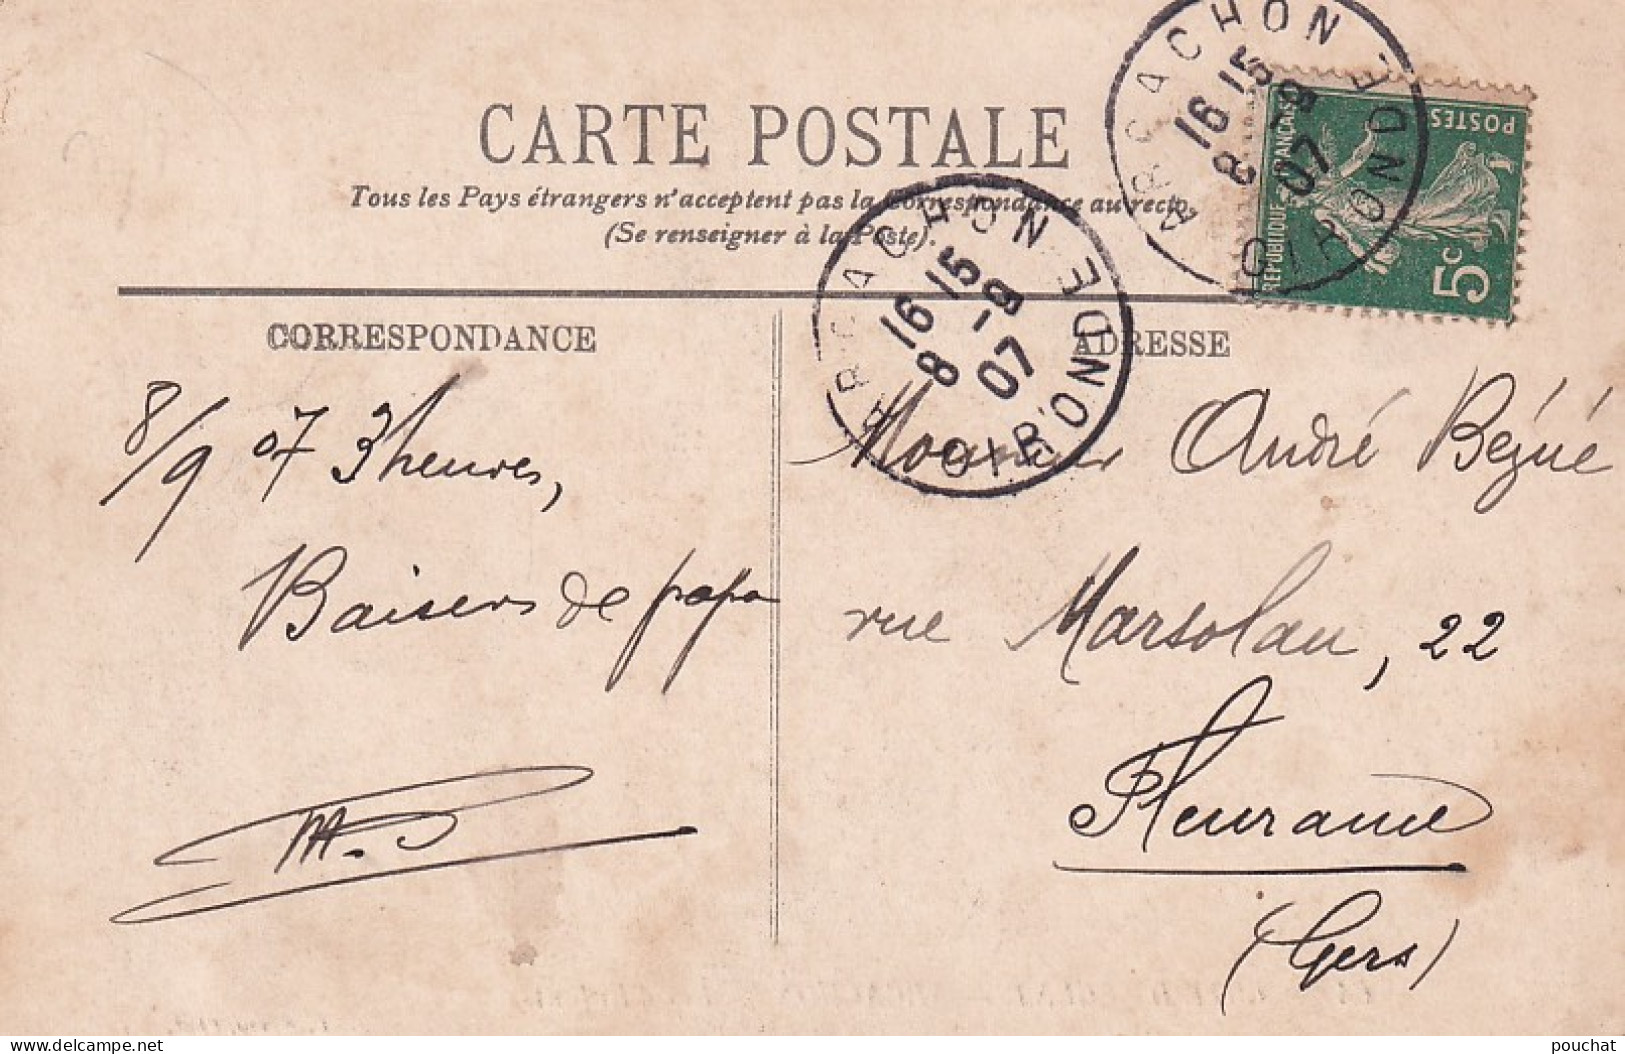 CARTE POSTALE
Tous les Pays étrangers n'acceptent pas la Correspondance au recto.
(Se renseigner à la Poste).
CORRESPONDANCE
8/9 07 3 heures,
Baisers de papa
ADRESSE
Monsieur André Bézué
rue Marsolau, 22
Fleurance
(Gers)
ARCACHON
16 15
8 -9
07
GIRONDE
ARCACHON
16 15
8 -9
07
GIRONDE
REPUBLIQUE FRANÇAISE
POSTES
5c
delcampe.net
pouchat